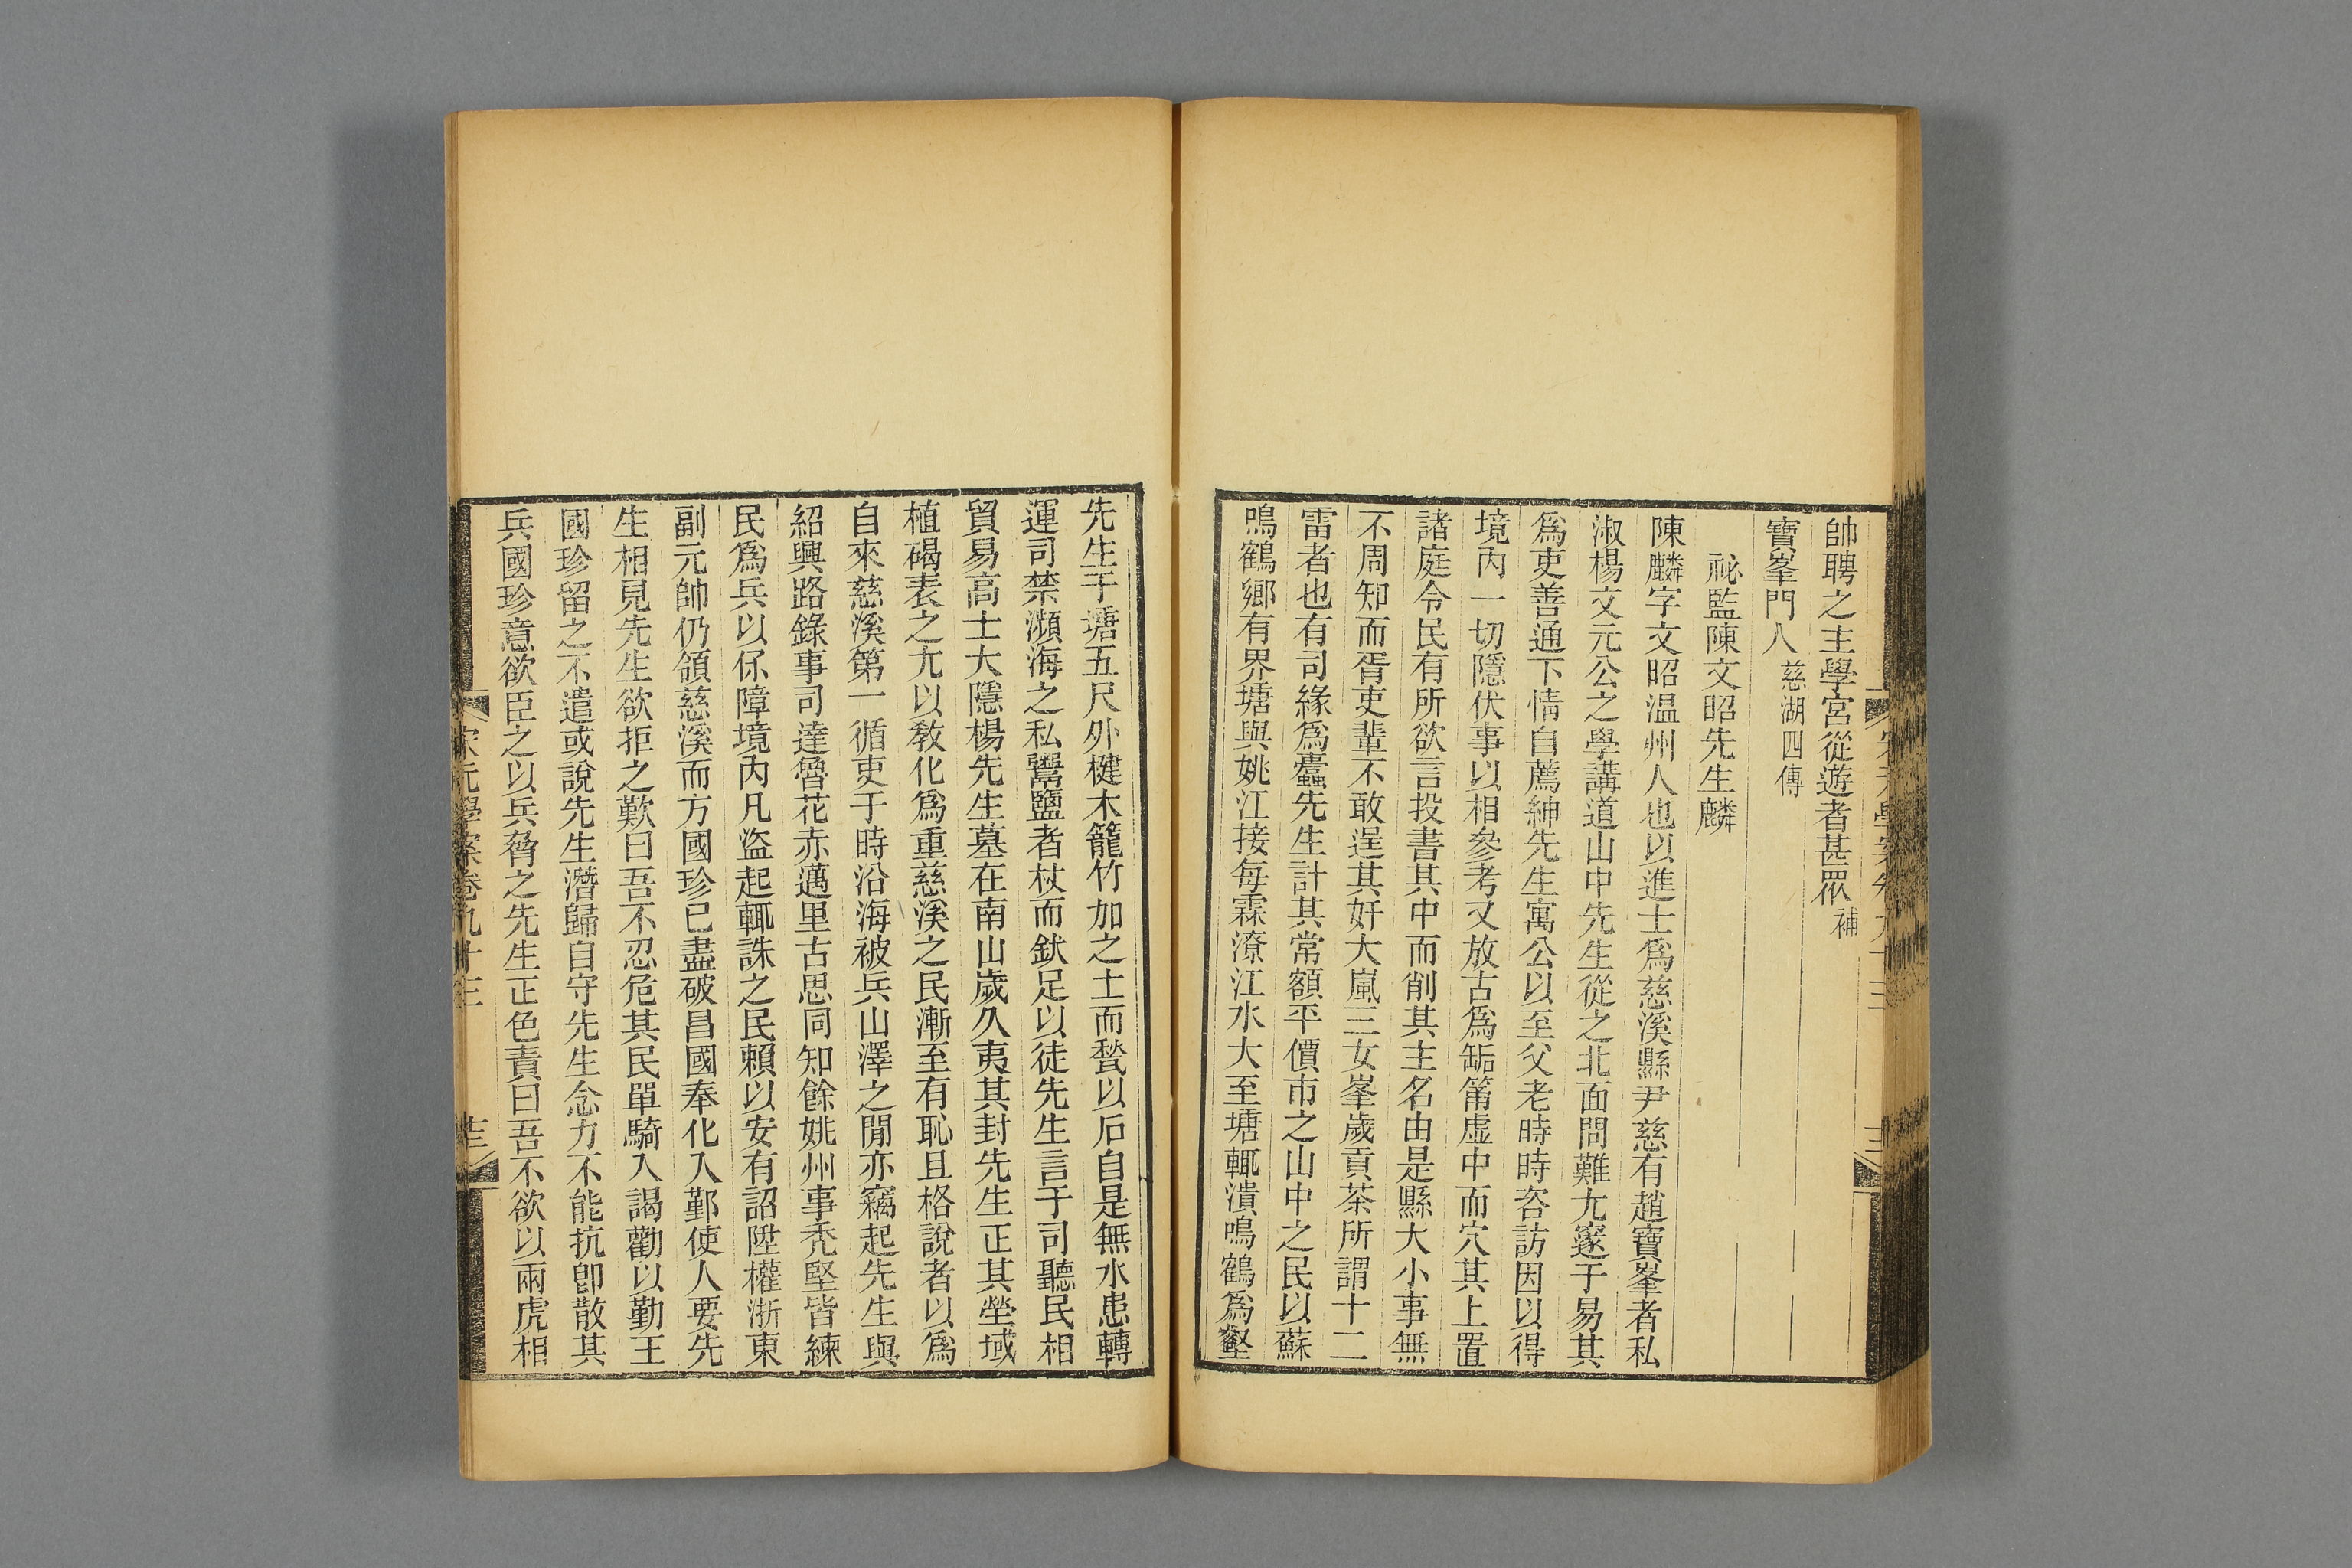 帥聘之主學宮從遊者甚眾補
寶峯門人慈湖四傳
祕監陳文昭先生麟
陳麟字文昭温州人也以進士爲慈溪縣尹慈有趙寶峯者私
淑楊文元公之學講道山中先生從之北面問難尢邃于易其
爲吏善通下情自薦紳先生寓公以至父老時時咨訪因以得
境內一切隱伏事以相參考又放古爲缿筩虛中而穴其上置
諸庭令民有所欲言投書其中而削其主名由是縣大小事無
不周知而胥吏輩不敢逞其奸大嵐三女峯歲貢茶所謂十二
雷者也有司緣爲蠹先生計其常額平價市之山中之民以蘇
鳴鶴鄉有界塘與姚江接每霖潦江水大至塘輒潰鳴鶴爲壑
先生于塘五尺外楗木籠竹加之土而甃以石自是無水患轉
運司禁瀕海之私鬻鹽者杖而釱足以徒先生言于司聽民相
貿易高士大隱楊先生墓在南山歲久夷其封先生正其塋域
植碣表之尢以敎化爲重慈溪之民漸至有恥且格說者以爲
自來慈溪第一循吏于時沿海被兵山澤之閒亦竊起先生與
紹興路錄事司達魯花赤邁里古思同知餘姚州事禿堅皆練
民爲兵以保障境內凡盜起輒誅之民賴以安有詔陞權浙東
副元帥仍領慈溪而方國珍已盡破昌國奉化入鄞使人要先
生相見先生欲拒之歎曰吾不忍危其民單騎入謁勸以勤王
國珍留之不遣或說先生潛歸自守先生念力不能抗卽散其
兵國珍意欲臣之以兵脅之先生正色責曰吾不欲以兩虎相
宋元學案卷九十三